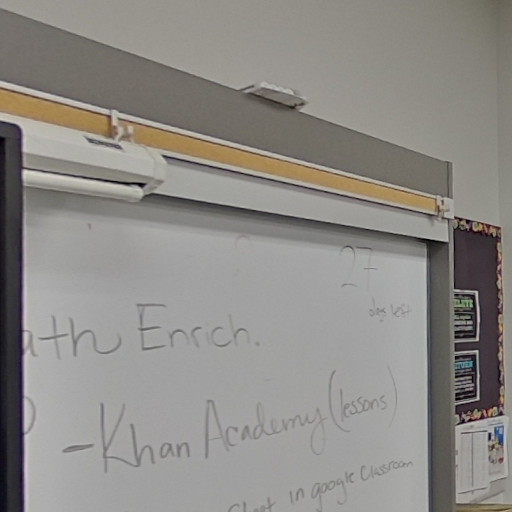 27
days left
ath Enrich.
- Khan Academy (lessons)
in google classroom